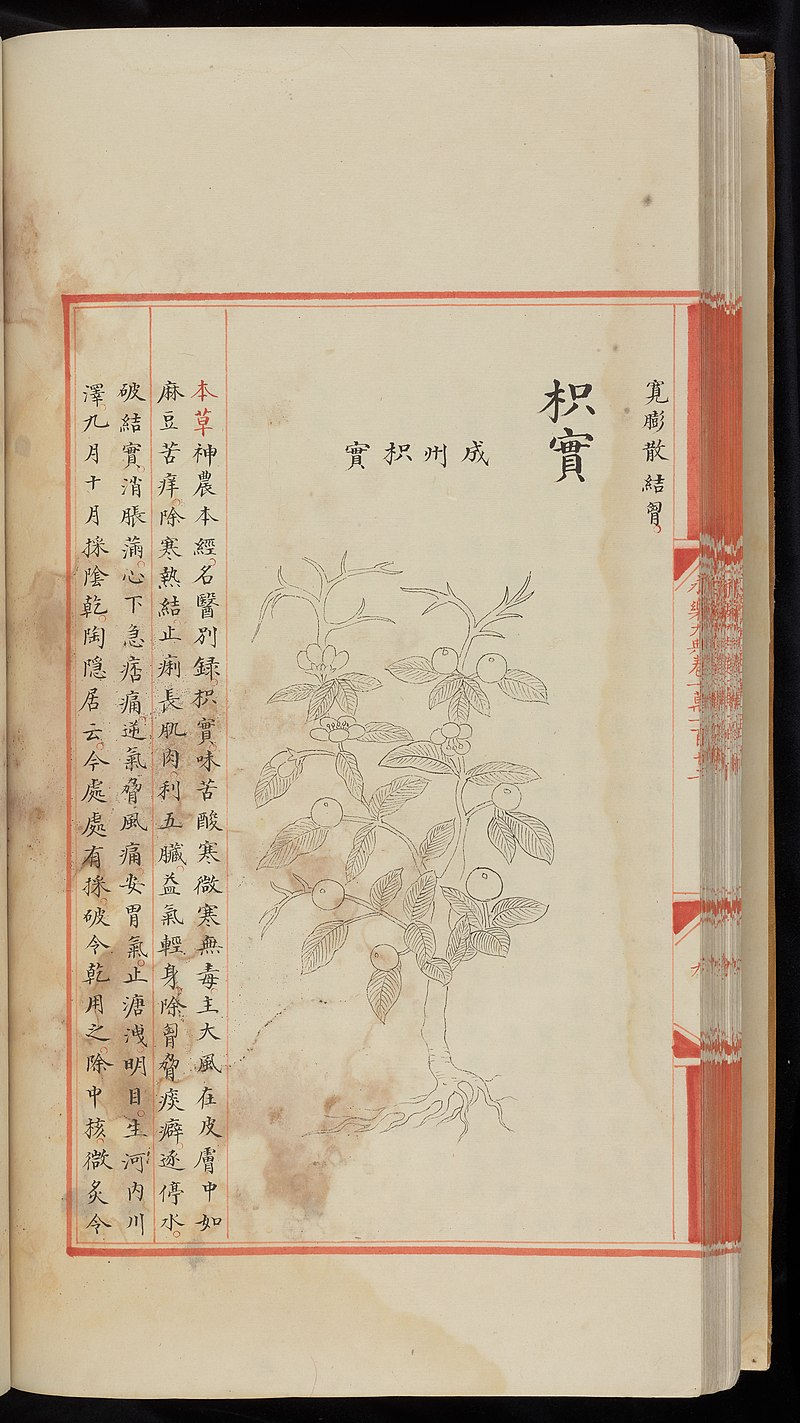 永樂大典卷一萬一百十二
寬膨散結胷。
枳實
成州枳實
本草神農本經。名醫別録。枳實。味苦酸寒微寒無毒主大風在皮膚中如
麻豆苦痒。除寒熱結。止痢。長肌肉。利五臟。益氣輕身。除胷脅痰癖。逐停水。
破結實。消脹滿。心下急痞痛。逆氣脅風痛。安胃氣。止溏洩。明目。生河内川
澤。九月十月採陰乾。陶隱居云。今處處有採。破令乾用之。除中核。微炙令